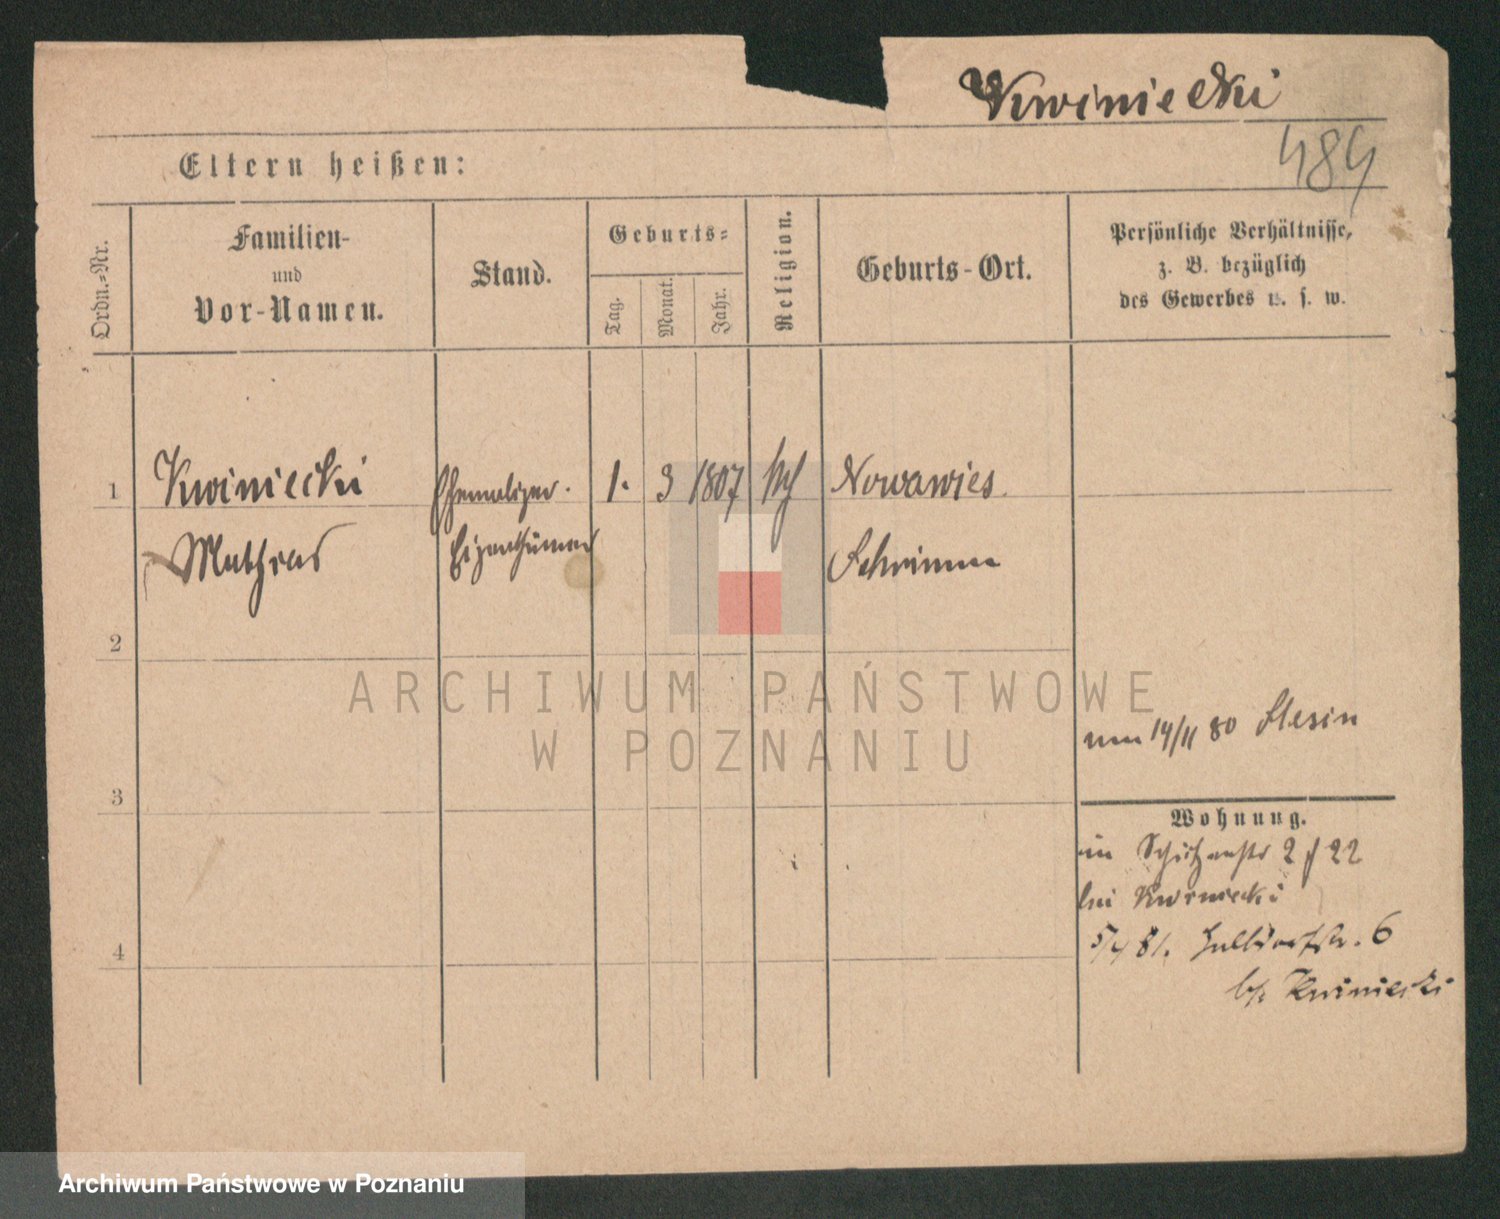 Kwiniecki
484
Eltern heißen:
Ordn.-Nr.
Familien-
und
Vor-Namen.
Stand.
Geburts-
Tag.
Monat.
Jahr.
Religion.
Geburts-Ort.
Persönliche Verhältnisse,
z. B. bezüglich
des Gewerbes u. s. w.
1 Kwiniecki Ehemaliger 1. 3 1807 Nowawies
Mathias Eigenthümer Schrimm
2
3
4
14/11 80 Slesin
Wohnung.
in Schützenstr 2 / 22
bei Kwiniecki
5/4 81. Halbdorfstr. 6
b/. Kwiniecki
ARCHIWUM PAŃSTWOWE
W POZNANIU
Archiwum Państwowe w Poznaniu